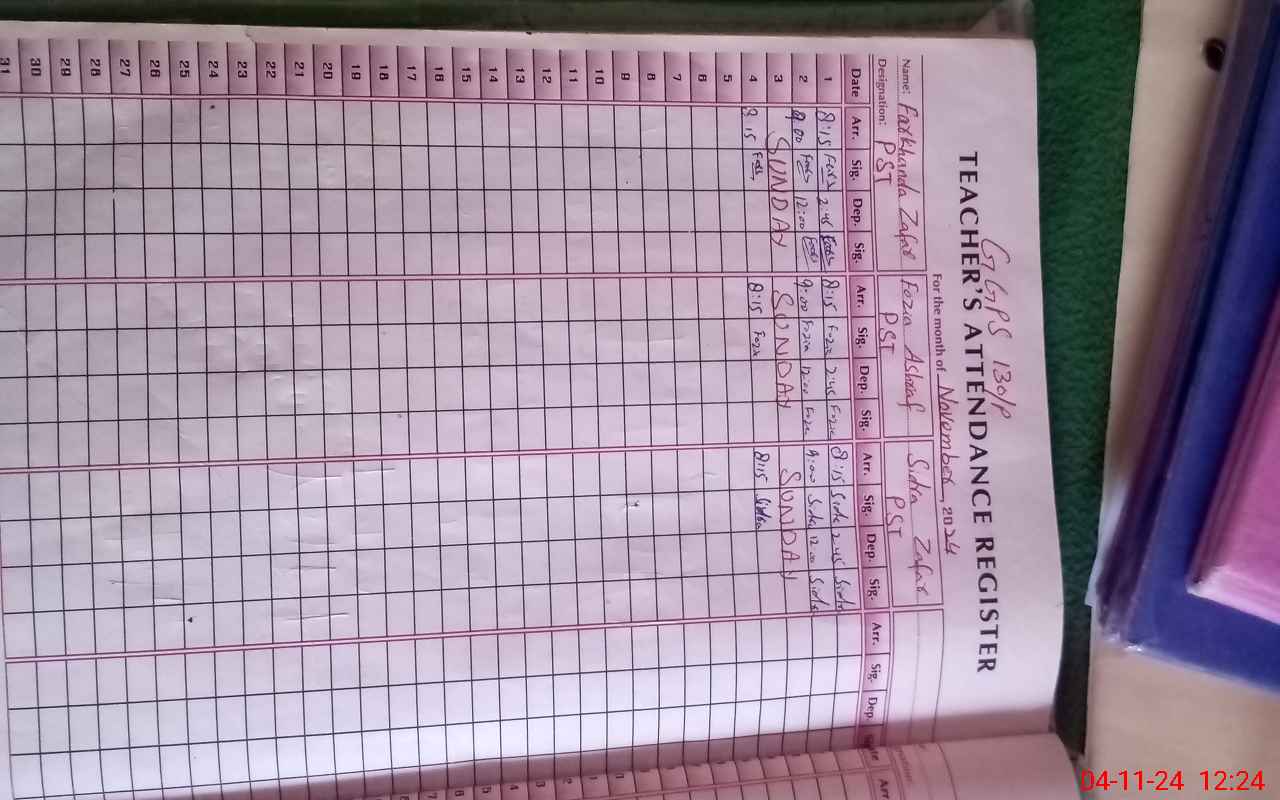 GGPS 130/P
TEACHER'S ATTENDANCE REGISTER
For the month of November, 2024
Name: Farkhanda Zafar Fozia Ashraf Sidra Zafar
Designation: PST PST PST
Date Arr. Sig. Dep. Sig. Arr. Sig. Dep. Sig. Arr. Sig. Dep. Sig. Arr. Sig. Dep.
1 8:15 2:45 8:15 Fozia 2:45 Fozia 8:15 Sidra 2:45 Sidra
2 9:00 12:00 9:00 Fozia 12:00 Fozia 9:00 Sidra 12:00 Sidra
3 SUNDAY SUNDAY SUNDAY
4 8:15 8:15 Fozia 8:15 Sidra
5
6
7
8
9
10
11
12
13
14
15
16
17
18
19
20
21
22
23
24
25
26
27
28
29
30
31
04-11-24 12:24